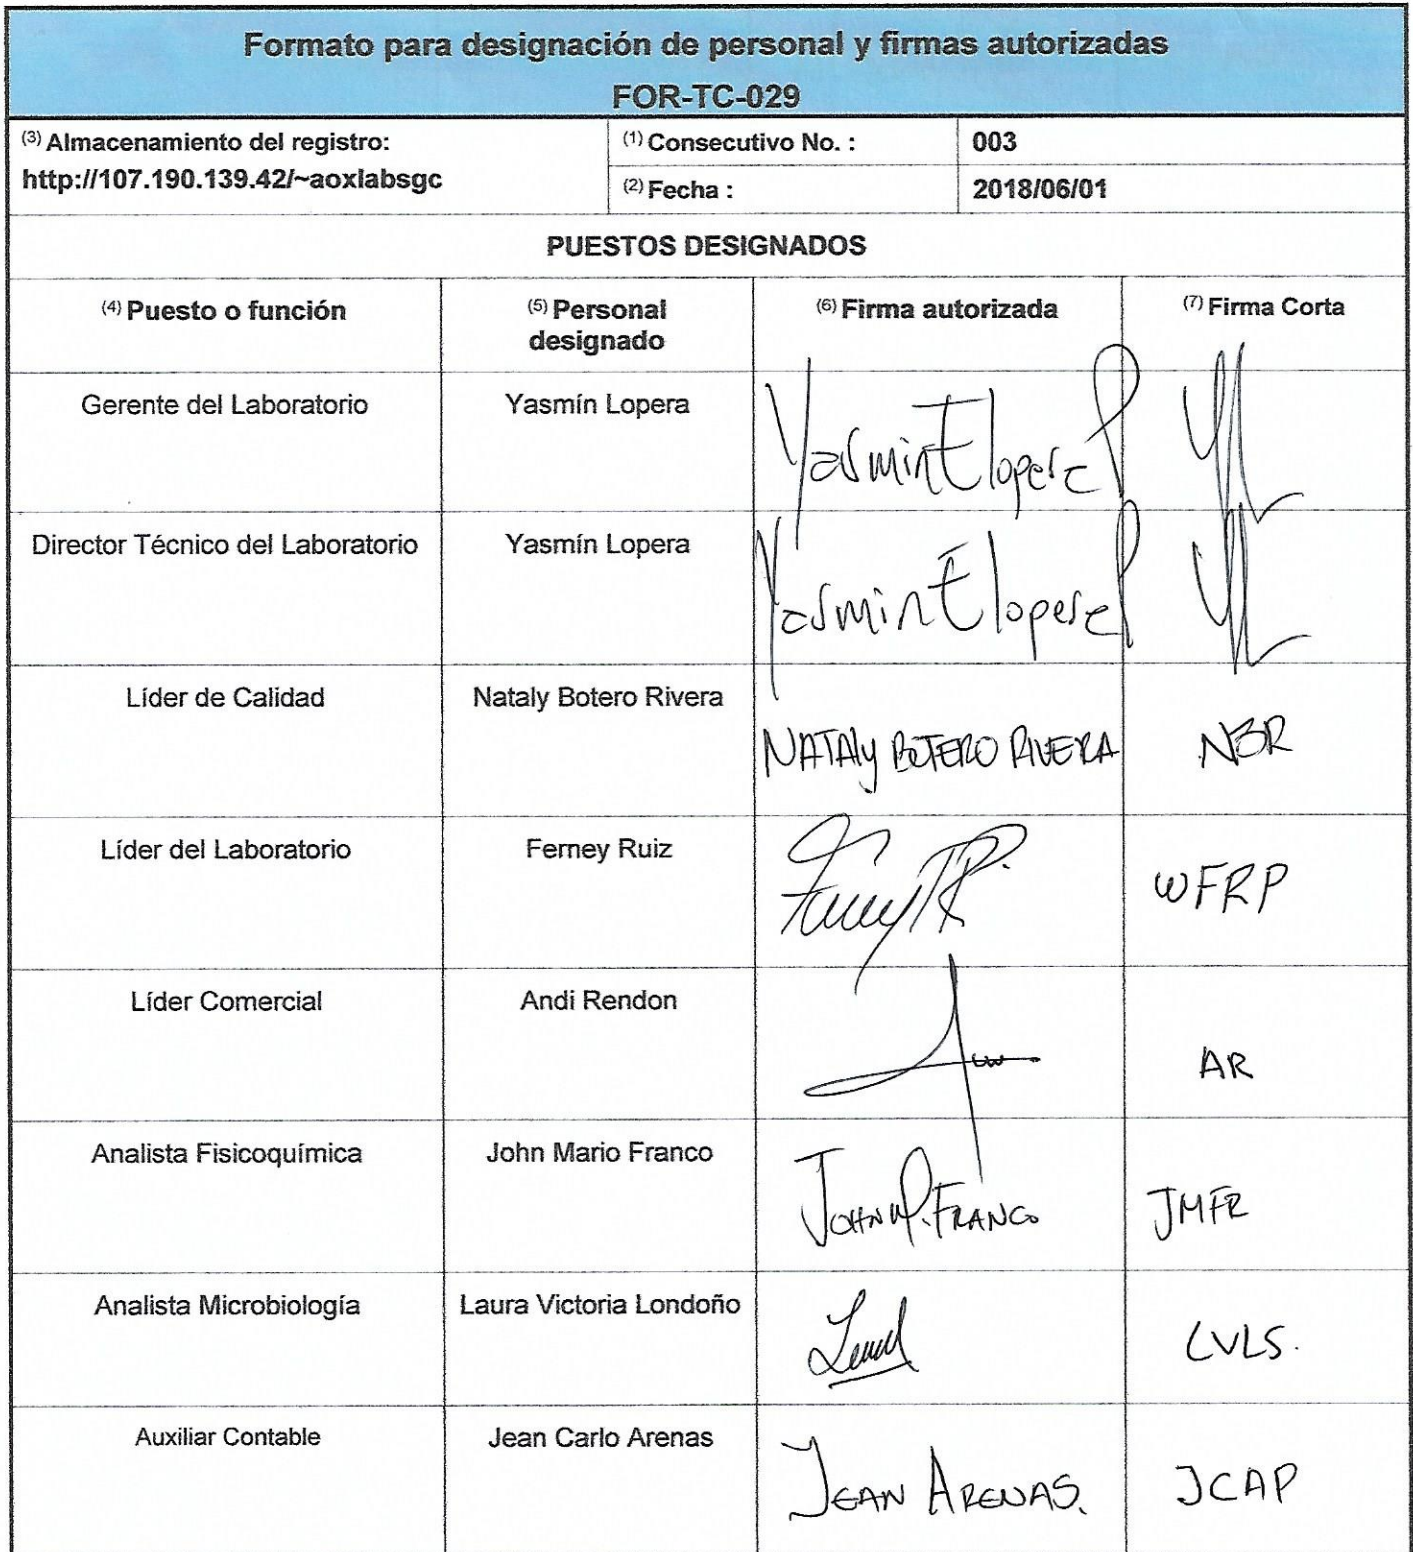 Formato para designación de personal y firmas autorizadas
FOR-TC-029
(3) Almacenamiento del registro:
http://107.190.139.42/~aoxlabsgc
(1) Consecutivo No. :
003
(2) Fecha :
2018/06/01
PUESTOS DESIGNADOS
(4) Puesto o función
(5) Personal
designado
(6) Firma autorizada
(7) Firma Corta
Gerente del Laboratorio
Yasmín Lopera
Yasmin E lopera
YL
Director Técnico del Laboratorio
Yasmín Lopera
Yasmin E lopera
YL
Líder de Calidad
Nataly Botero Rivera
NATALY BOTERO RIVERA
NBR
Líder del Laboratorio
Ferney Ruiz
WFRP
Líder Comercial
Andi Rendon
AR
Analista Fisicoquímica
John Mario Franco
JOHN M. FRANCO
JMFR
Analista Microbiología
Laura Victoria Londoño
LVLS.
Auxiliar Contable
Jean Carlo Arenas
JEAN ARENAS.
JCAP